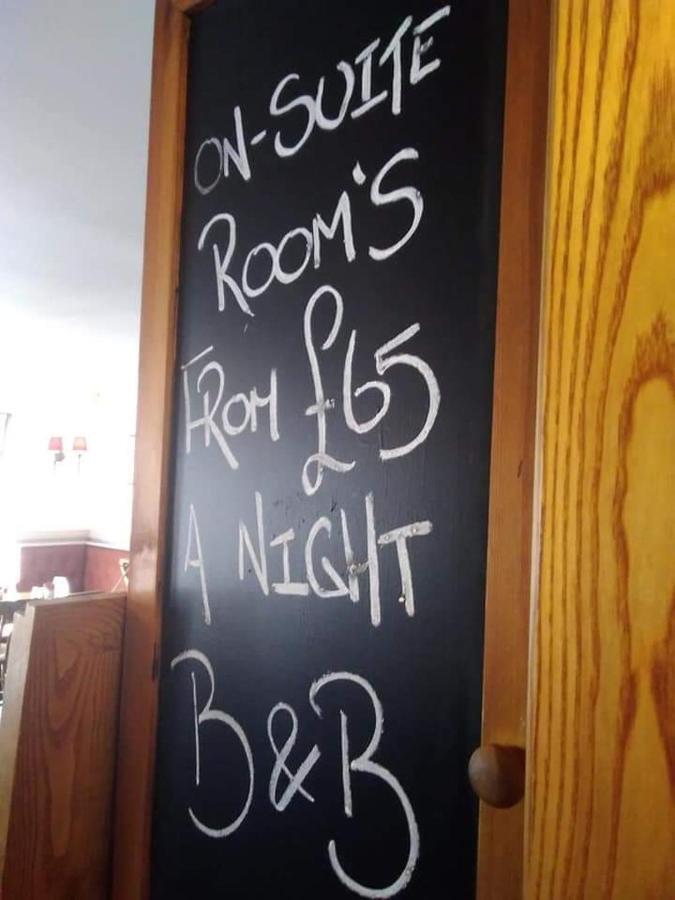 ON-SUITE
ROOM'S
FROM £65
A NIGHT
B&B